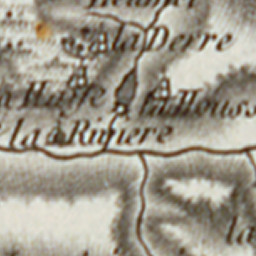 la Derre
la Haye
la Mouss
la Riviere
la